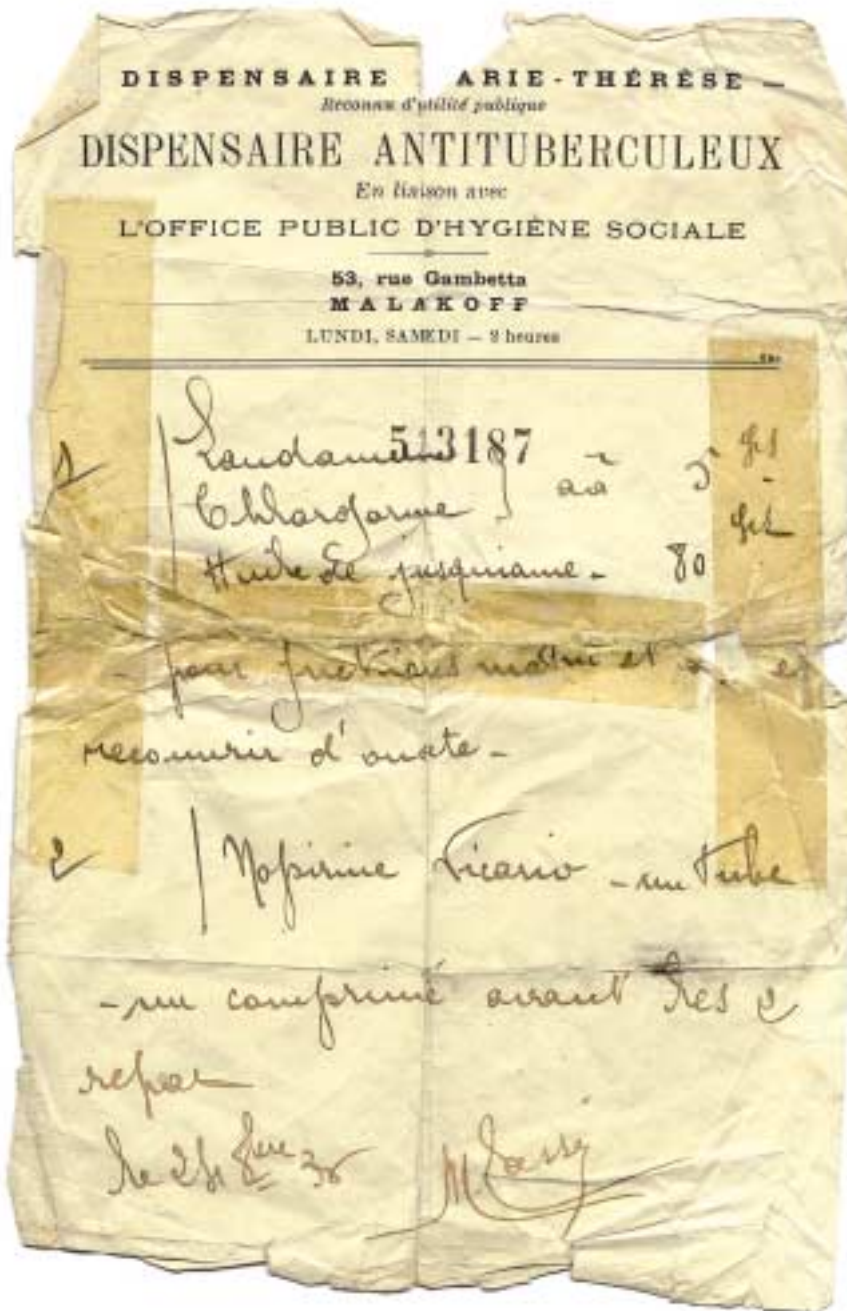 DISPENSAIRE ARIE-THÉRÈSE —
Reconnu d'utilité publique
DISPENSAIRE ANTITUBERCULEUX
En liaison avec
L'OFFICE PUBLIC D'HYGIÈNE SOCIALE
53, rue Gambetta
MALAKOFF
LUNDI, SAMEDI — 2 heures
513187
1 Laudanum
Chloroforme } aā 5 grs
Huile de jusquiame - 80 grs
- pour frictions matin et et
recouvrir d'ouate -
2 Vicario - un tube
- un comprimé avant les 2
repas
le